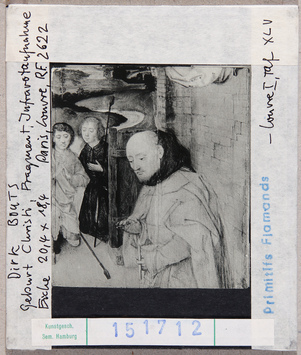 Dirk BOUTS
Geburt Christi, Fragment, Infrarotaufnahme
Eiche 20,4 x 18,4 Paris, Louvre, RF 2622
– Louvre I, Taf XLV
Primitifs Flamands
Kunstgesch.
Sem. Hamburg
151712